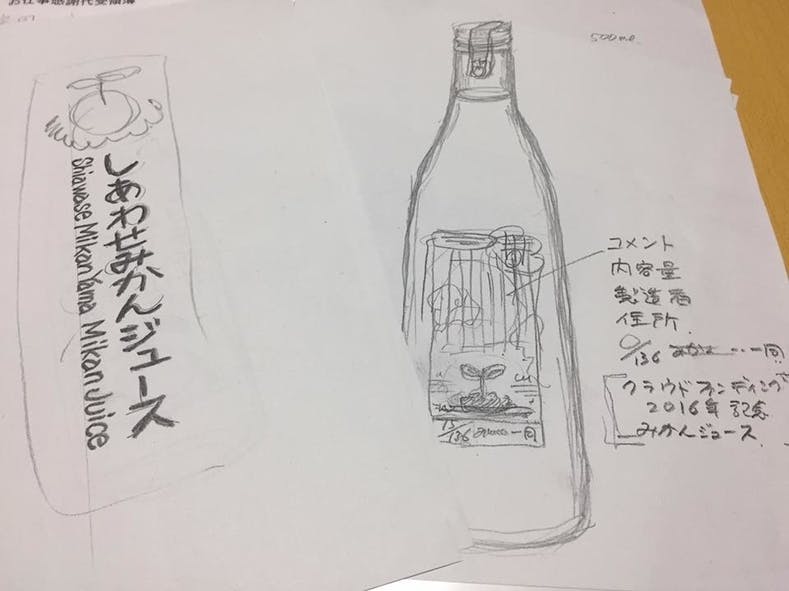 お仕事感謝代受領簿
500ml
しあわせみかんジュース
Shiawase Mikan Yama Mikan Juice
コメント
内容量
製造者
住所
/136 一同
クラウドファンディング
2016年記念
みかんジュース
13/136 一同